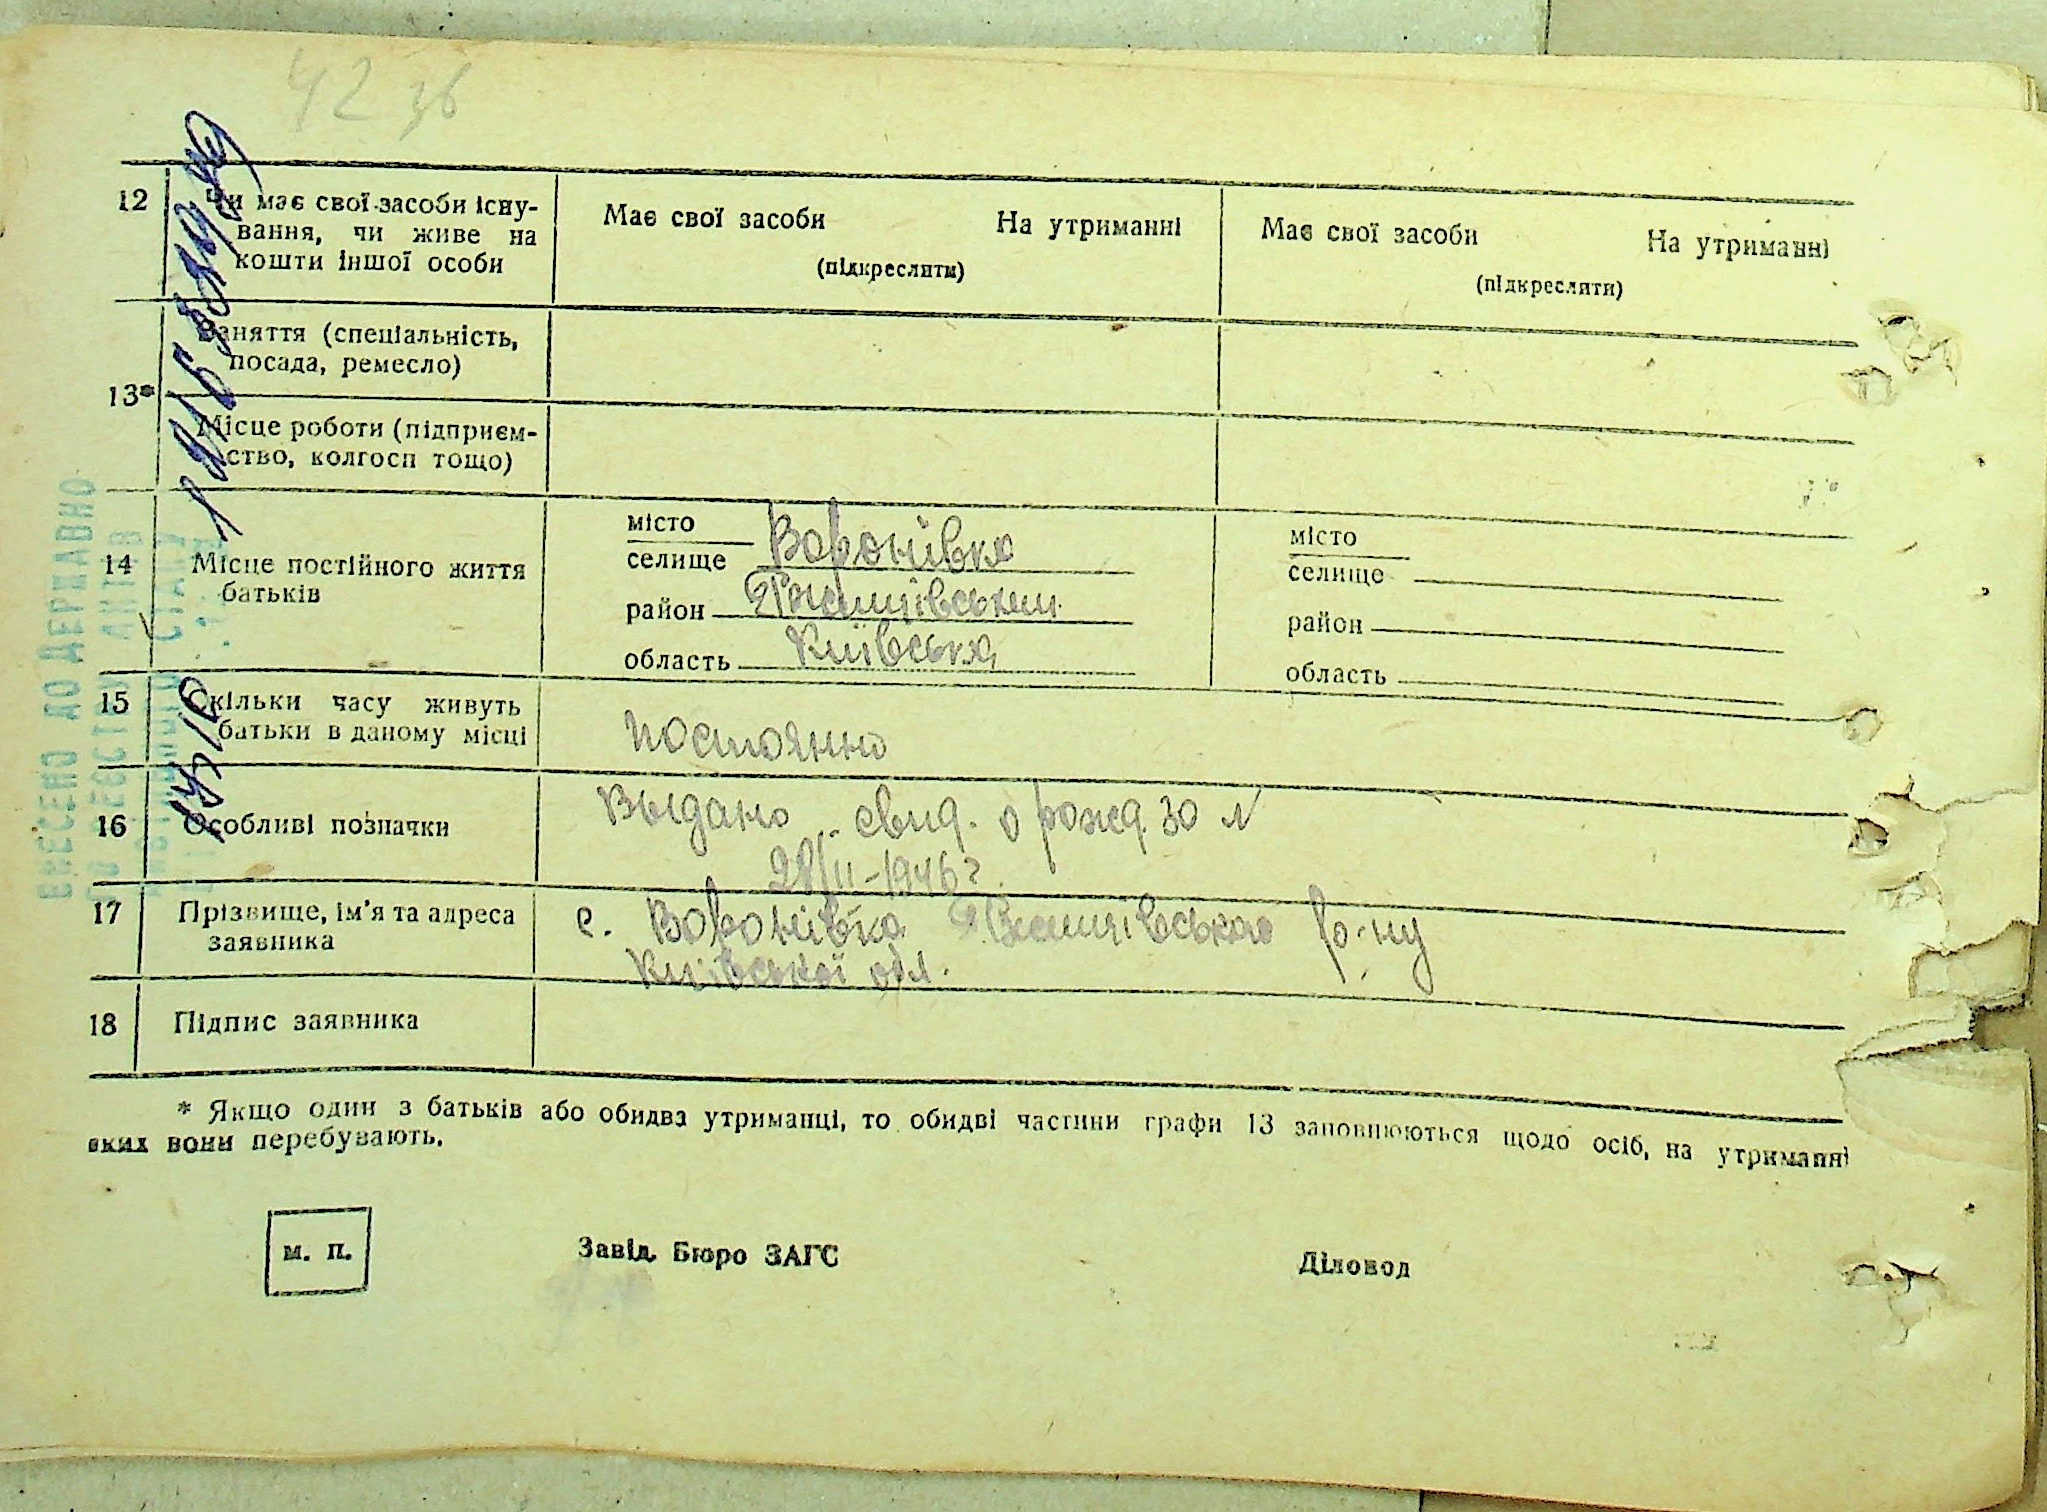 42 зв
12 Чи має свої засоби існу-
вання, чи живе на
кошти іншої особи
Має свої засоби На утриманні
(підкреслити)
Має свої засоби На утриманні
(підкреслити)
13*
Заняття (спеціальність,
посада, ремесло)
Місце роботи (підприєм-
ство, колгосп тощо)
14 Місце постійного життя
батьків
місто
селище Воронівка
район
область Київська
місто
селище
район
область
15 Скільки часу живуть
батьки в даному місці
постоянно
16 Особливі позначки
Выдано свид. о рожд. 30 N
28/II-1946 г.
17 Прізвище, ім'я та адреса
заявника
с. Воронівка р-ну
Київської обл.
18 Підпис заявника
* Якщо один з батьків або обидва утриманці, то обидві частини графи 13 заповнюються щодо осіб, на утриманні
яких вони перебувають.
м. п. Завід. Бюро ЗАГС Діловод
ВНЕСЕНО ДО ДЕРЖАВНО